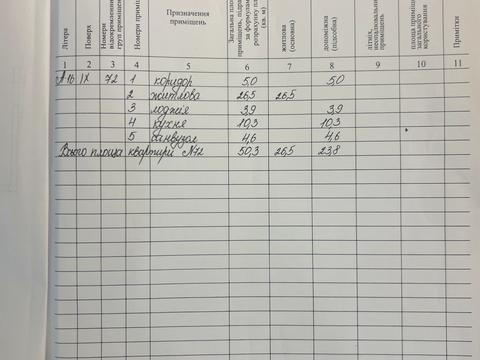 Літера
Поверх
Номери
відокремлених
груп приміщень
Номери приміщ
Призначення
приміщень
Загальна пло
приміщень, підра
за формулам
розрахунку пл
(кв. м)
житлова
(основна)
допоміжна
(підсобна)
літніх,
неопалювальних
приміщень
площа приміщ
загального
користування
Примітки
1 2 3 4 5 6 7 8 9 10 11
А 16 IX 72 1 коридор 5,0 5,0
2 житлова 26,5 26,5
3 лоджія 3,9 3,9
4 кухня 10,3 10,3
5 санвузол 4,6 4,6
Всього площа квартири №72 50,3 26,5 23,8